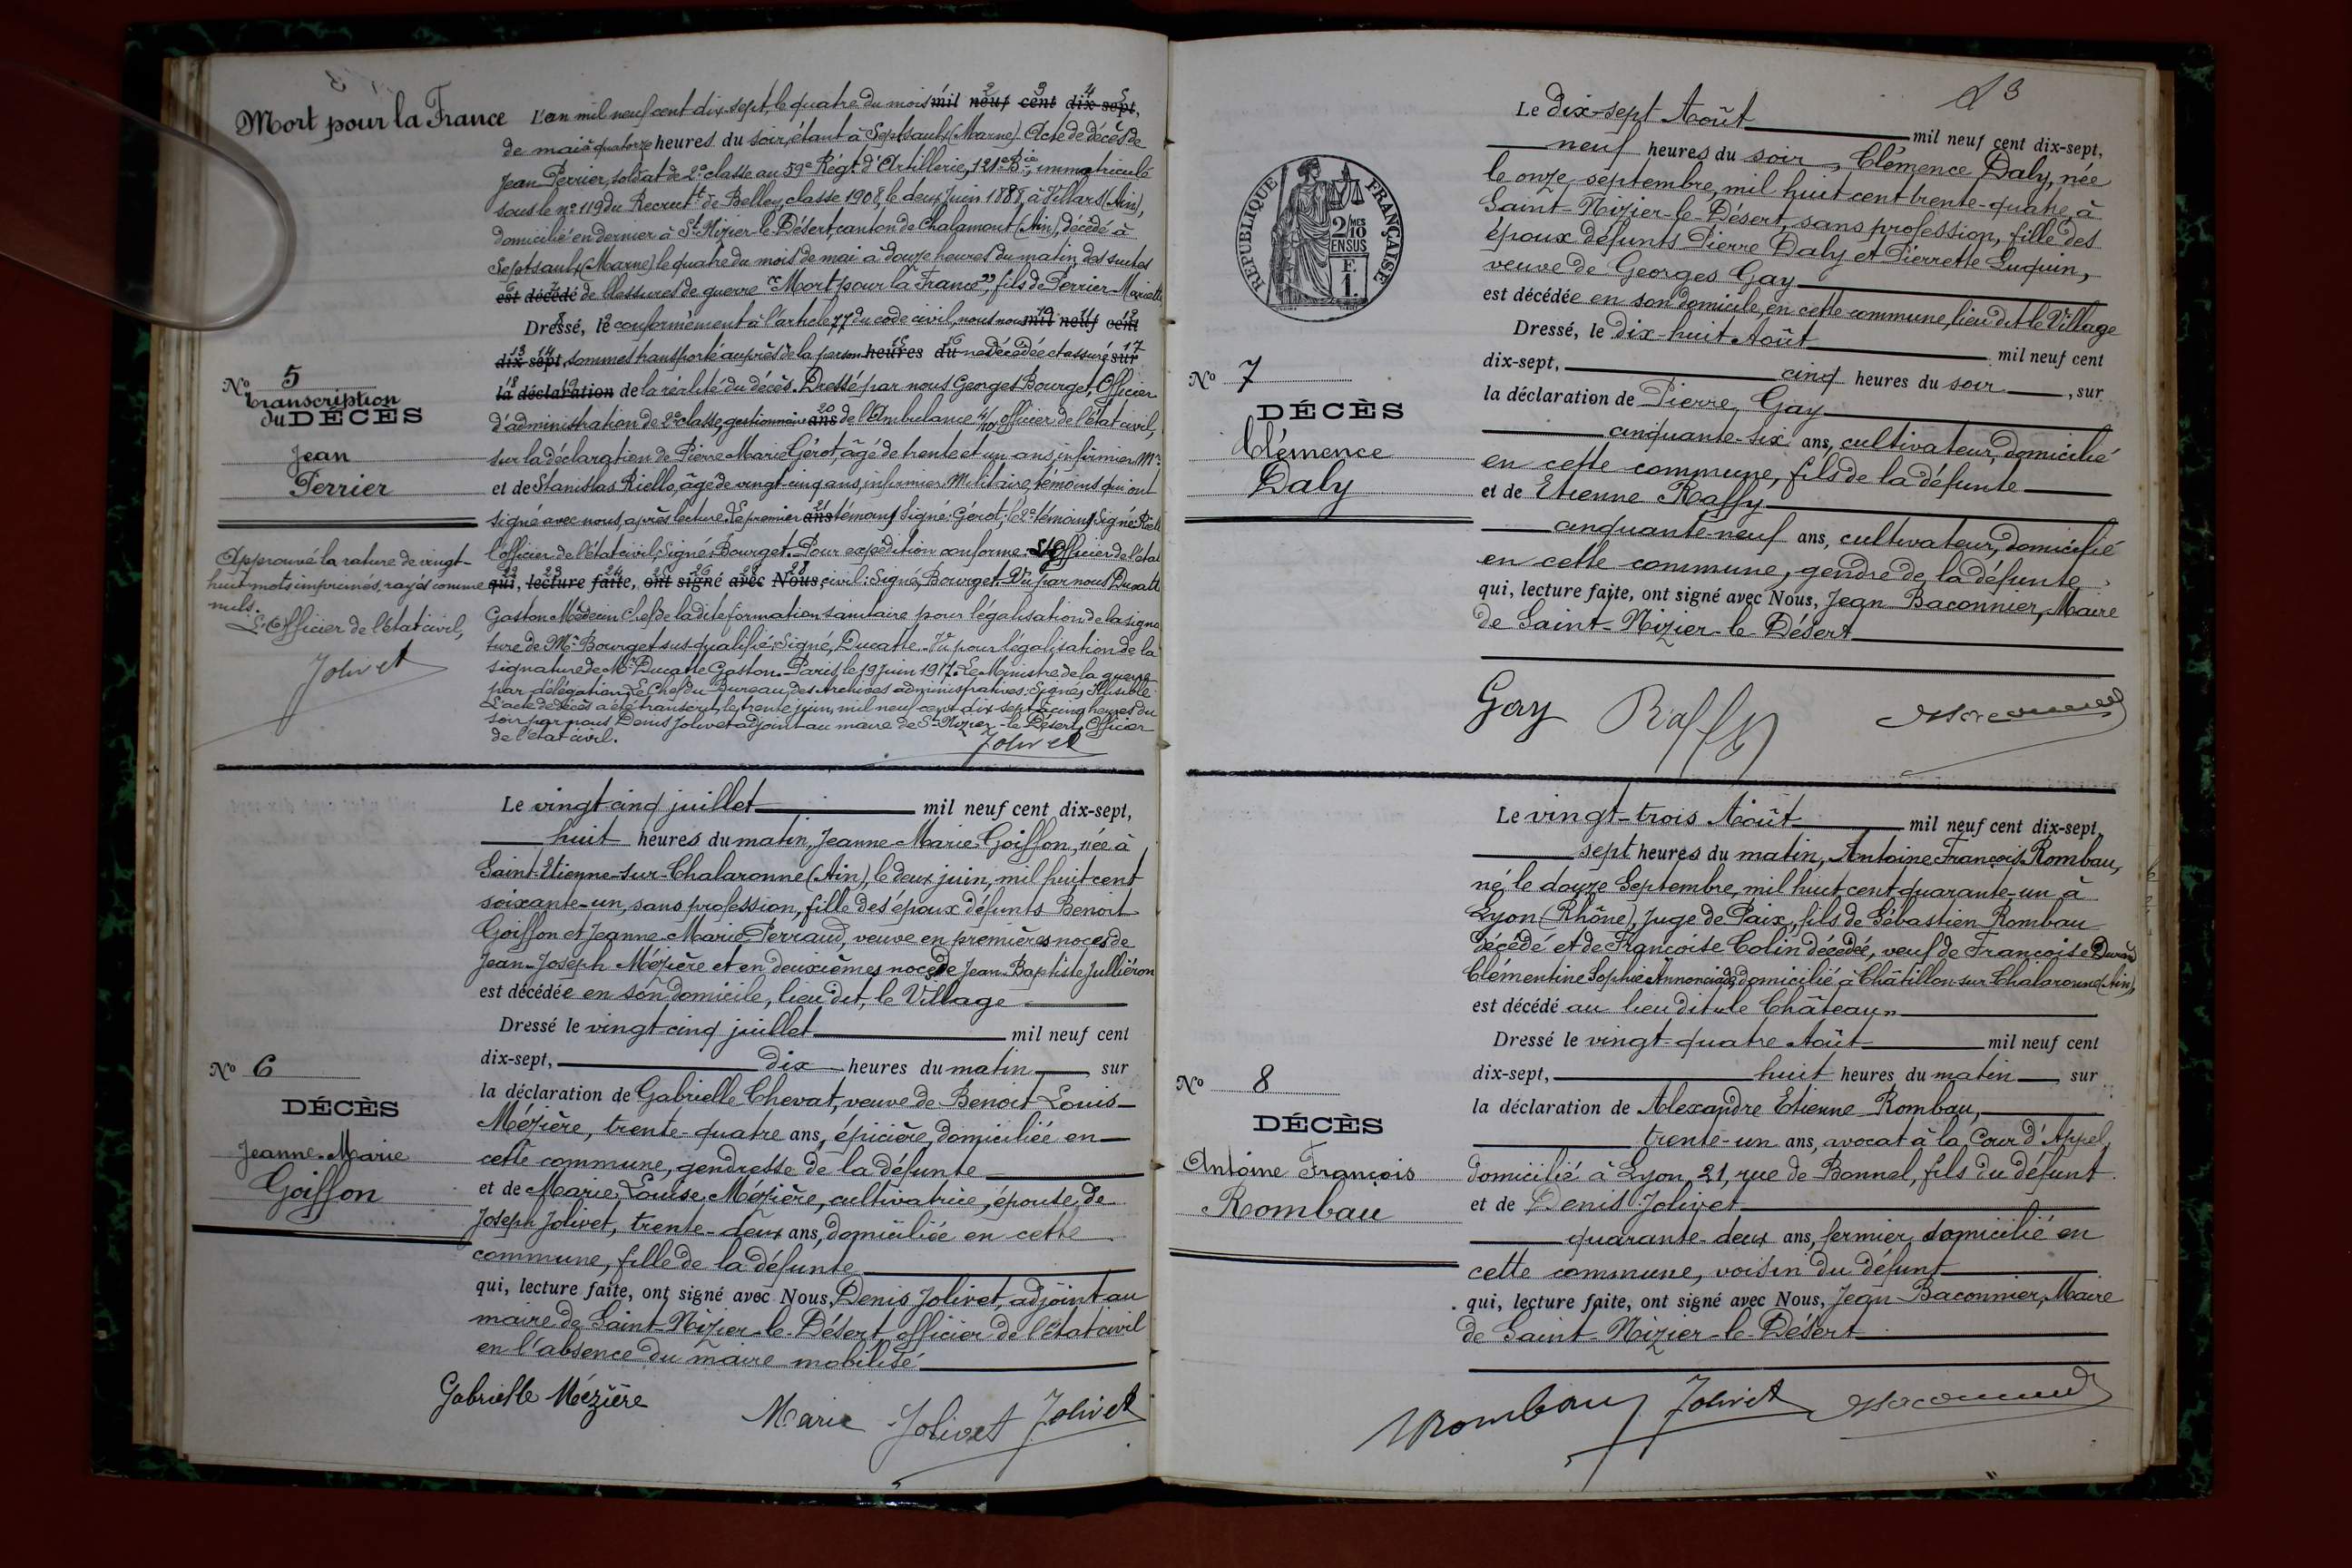 Mort pour la France
L'an mil neuf cent dix-sept, le quatre du mois mil neuf cent dix-sept,
de mai à quatorze heures du soir, étant à Septsaulx (Marne). Acte de décès de
Jean Perrier, soldat de 2e classe au 59e Régt d'Artillerie, 121e Bie, immatriculé
sous le no 119 du Recrutt de Belley, classe 1908, le deux Juin 1888, à Villars (Ain),
domicilié en dernier à St Nizier-le-Désert, canton de Chalamont (Ain), décédé à
Septsaulx (Marne) le quatre du mois de mai à douze heures du matin, des suites
est décédé de blessures de guerre "Mort pour la France", fils de Perrier Mariette
Dressé, le conformément à l'article 77 du code civil, nous nous mil neuf cent
dix-sept, sommes transporté auprès de la person heures du ne décédée et assuré sur
la déclaration de la réalité du décès. Dressé par nous Georges Bourget, Officier
d'administration de 2e classe, gestionnaire ans de l'Ambulance 4/10 officier de l'état civil,
sur la déclaration de Pierre Marie Gérot, âgé de trente et un ans, infirmier Mre
et de Stanislas Riello, âgé de vingt cinq ans, infirmier Militaire, témoins qui ont
signé avec nous, après lecture. Le premier ans témoin Signé: Gérot; le 2e témoin Signé: Riello
l'officier de l'état civil; Signé: Bourget. Pour expédition conforme: L'Officier de l'état
qui, lecture faite, ont signé avec Nous, civil: Signé, Bourget. Vu par nous Ducatte
Gaston Médecin Chef de la dite formation sanitaire pour légalisation de la signa
ture de Mr Bourget susqualifié; Signé, Ducatte. Vu pour légalisation de la
signature de Mr Ducatte Gaston. Paris, le 19 juin 1917. Le Ministre de la guerre
par délégation, Le Chef du Bureau des Archives administratives: Signé, Illisible.
L'acte de décès a été transcrit, le trente juin, mil neuf cent dix-sept à cinq heures du
soir par nous Denis Jolivet adjoint au maire de St Nizier-le-Désert, Officier
de l'état civil.
Jolivet
No 5
transcription
du DÉCÈS
Jean
Perrier
Approuvé la rature de vingt-
huit mots imprimés, rayés comme
nuls.
L'Officier de l'état civil,
Jolivet
Le vingt-cinq juillet mil neuf cent dix-sept,
huit heures du matin, Jeanne-Marie Goiffon, née à
Saint-Etienne-sur-Chalaronne (Ain), le deux juin, mil huit cent
soixante-un, sans profession, fille des époux défunts Benoit
Goiffon et Jeanne-Marie Perraud, veuve en premières noces de
Jean-Joseph Mézière et en deuxièmes noces de Jean-Baptiste Julliéron
est décédée en son domicile, lieu dit, le Village
Dressé le vingt-cinq juillet mil neuf cent
dix-sept, dix heures du matin, sur
la déclaration de Gabrielle Chevat, veuve de Benoit Louis
Mézière, trente-quatre ans, épicière, domiciliée en
cette commune, gendresse de la défunte
et de Marie Louise Mézière, cultivatrice, épouse de
Joseph Jolivet, trente-deux ans, domiciliée en cette
commune, fille de la défunte
qui, lecture faite, ont signé avec Nous, Denis Jolivet, adjoint au
maire de Saint-Nizier-le-Désert, officier de l'état civil
en l'absence du maire mobilisé
No 6
DÉCÈS
Jeanne-Marie
Goiffon
Gabrielle Mézière
Marie Jolivet
Jolivet
Le dix-sept Août mil neuf cent dix-sept,
neuf heures du soir, Clémence Daly, née
le onze septembre, mil huit cent trente-quatre, à
Saint-Nizier-le-Désert, sans profession, fille des
époux défunts Pierre Daly et Pierrette Luquin,
veuve de Georges Gay
est décédée en son domicile, en cette commune, lieu dit le Village
Dressé, le dix-huit Août mil neuf cent
dix-sept, cinq heures du soir, sur
la déclaration de Pierre Gay
cinquante-six ans, cultivateur, domicilié
en cette commune, fils de la défunte
et de Etienne Raffy
cinquante-neuf ans, cultivateur, domicilié
en cette commune, gendre de la défunte
qui, lecture faite, ont signé avec Nous, Jean Baconnier, Maire
de Saint-Nizier-le-Désert
RÉPUBLIQUE FRANÇAISE
2 MES
10
EN SUS
F.
1.
No 7
DÉCÈS
Clémence
Daly
Gay
Raffy
Le vingt-trois Août mil neuf cent dix-sept,
sept heures du matin, Antoine François Rombau,
né, le douze Septembre, mil huit cent quarante-un à
Lyon (Rhône), Juge de Paix, fils de Sébastien Rombau
décédé et de Françoise Colin décédée, veuf de Françoise Durand
Clémentine Sophie Annonciade, domicilié à Châtillon-sur-Chalaronne (Ain),
est décédé au lieu dit "le Château"
Dressé le vingt-quatre Août mil neuf cent
dix-sept, huit heures du matin, sur
la déclaration de Alexandre Etienne Rombau,
trente-un ans, avocat à la Cour d'Appel,
domicilié à Lyon, 21, rue de Bonnel, fils du défunt
et de Denis Jolivet
quarante-deux ans, fermier, domicilié en
cette commune, voisin du défunt
qui, lecture faite, ont signé avec Nous, Jean Baconnier, Maire
de Saint-Nizier-le-Désert
No 8
DÉCÈS
Antoine François
Rombau
Rombau
Jolivet